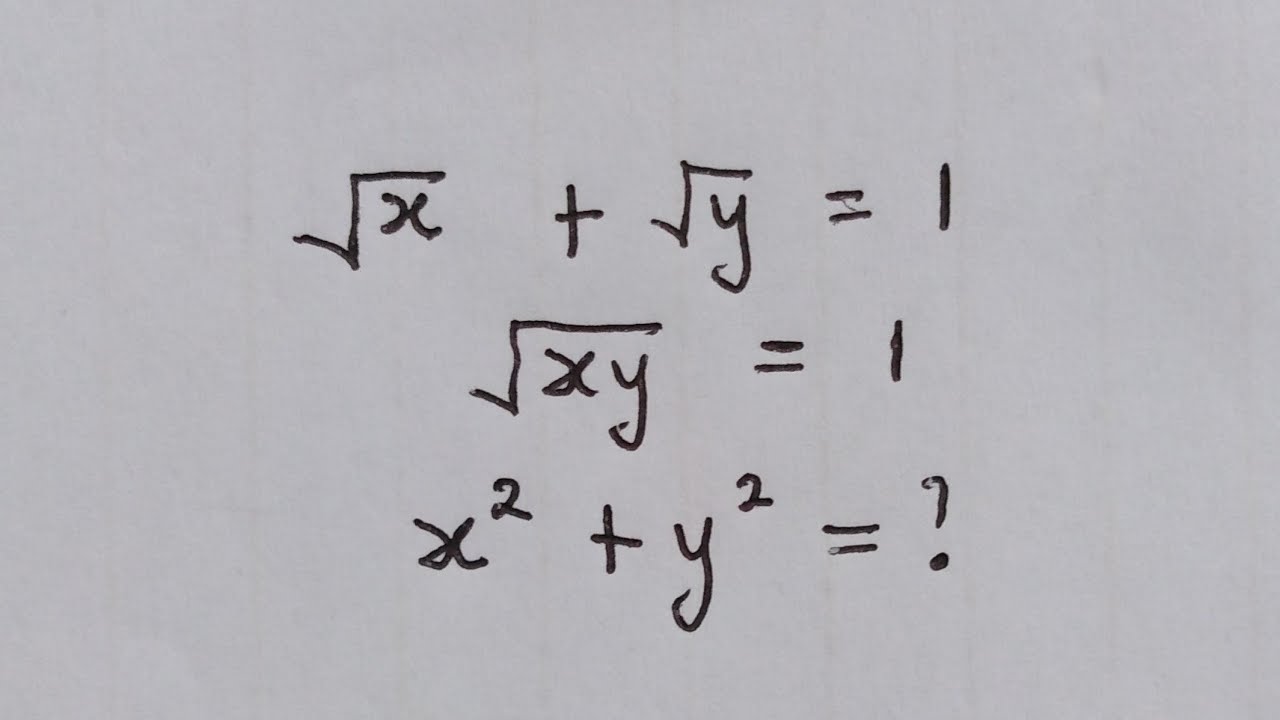 √x + √y = 1
√xy = 1
x² + y² = ?